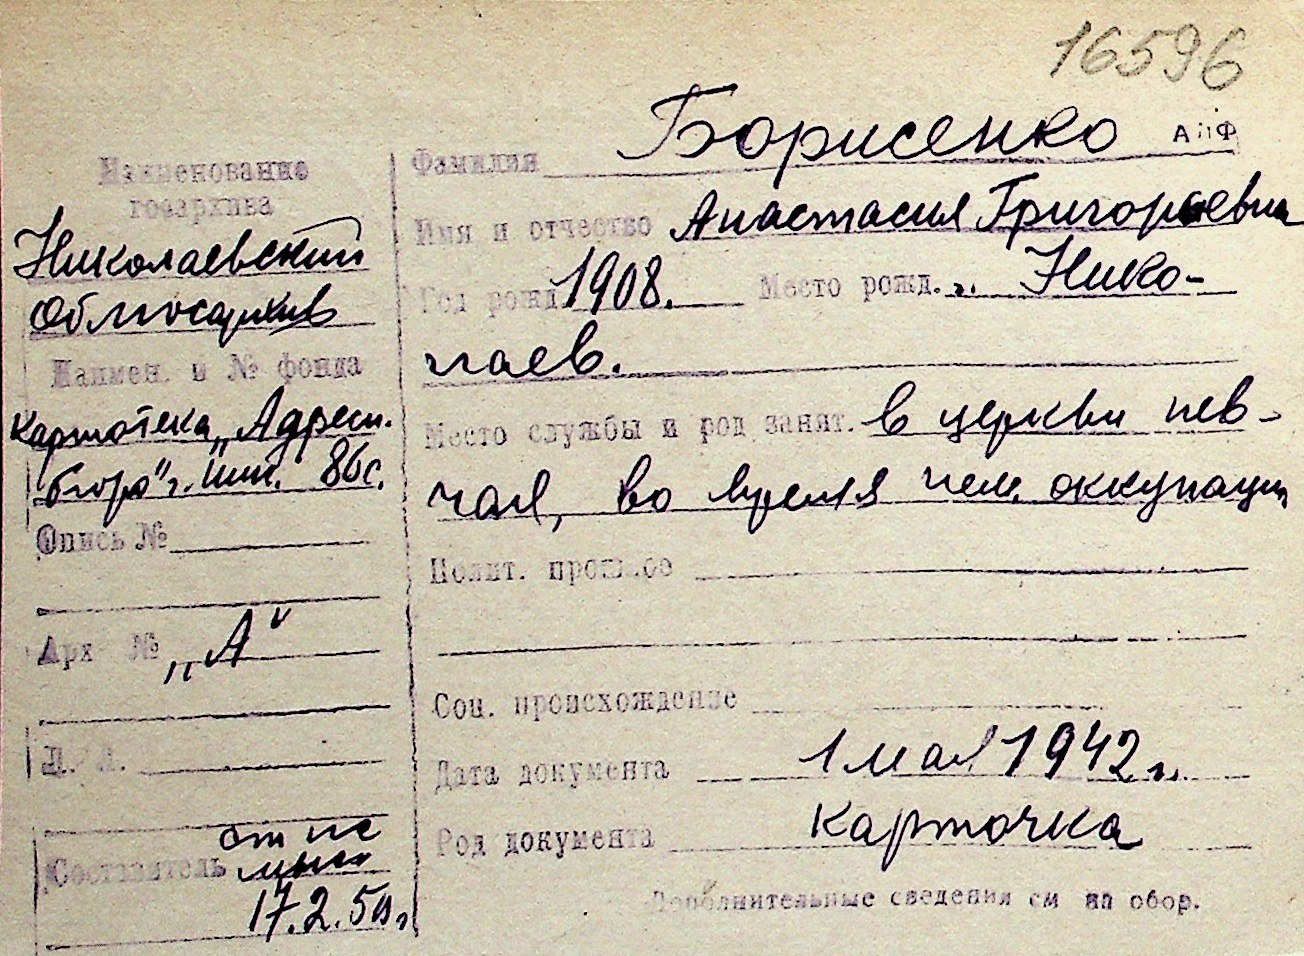 16596
Фамилия Борисенко
Имя и отчество Анастасия Григораевна
Год рожд 1908. Место рожд. г. Нико-
лаев.
Место службы и род занят. в церкви пев-
чая, во время нем. оккупации
Полит. прошлое
Соц. происхождение
Дата документа 1 мая 1942 г.
Род документа карточка
Дополнительные сведения см на обор.
Наименование
госархива
Николаевский
Облгосархив
Наимен. и № фонда
картотека „Адресн.
бюро" г. Ник. 86с.
Опись №
Арх № „А"
Л. Л.
Составитель
17.2.50 г